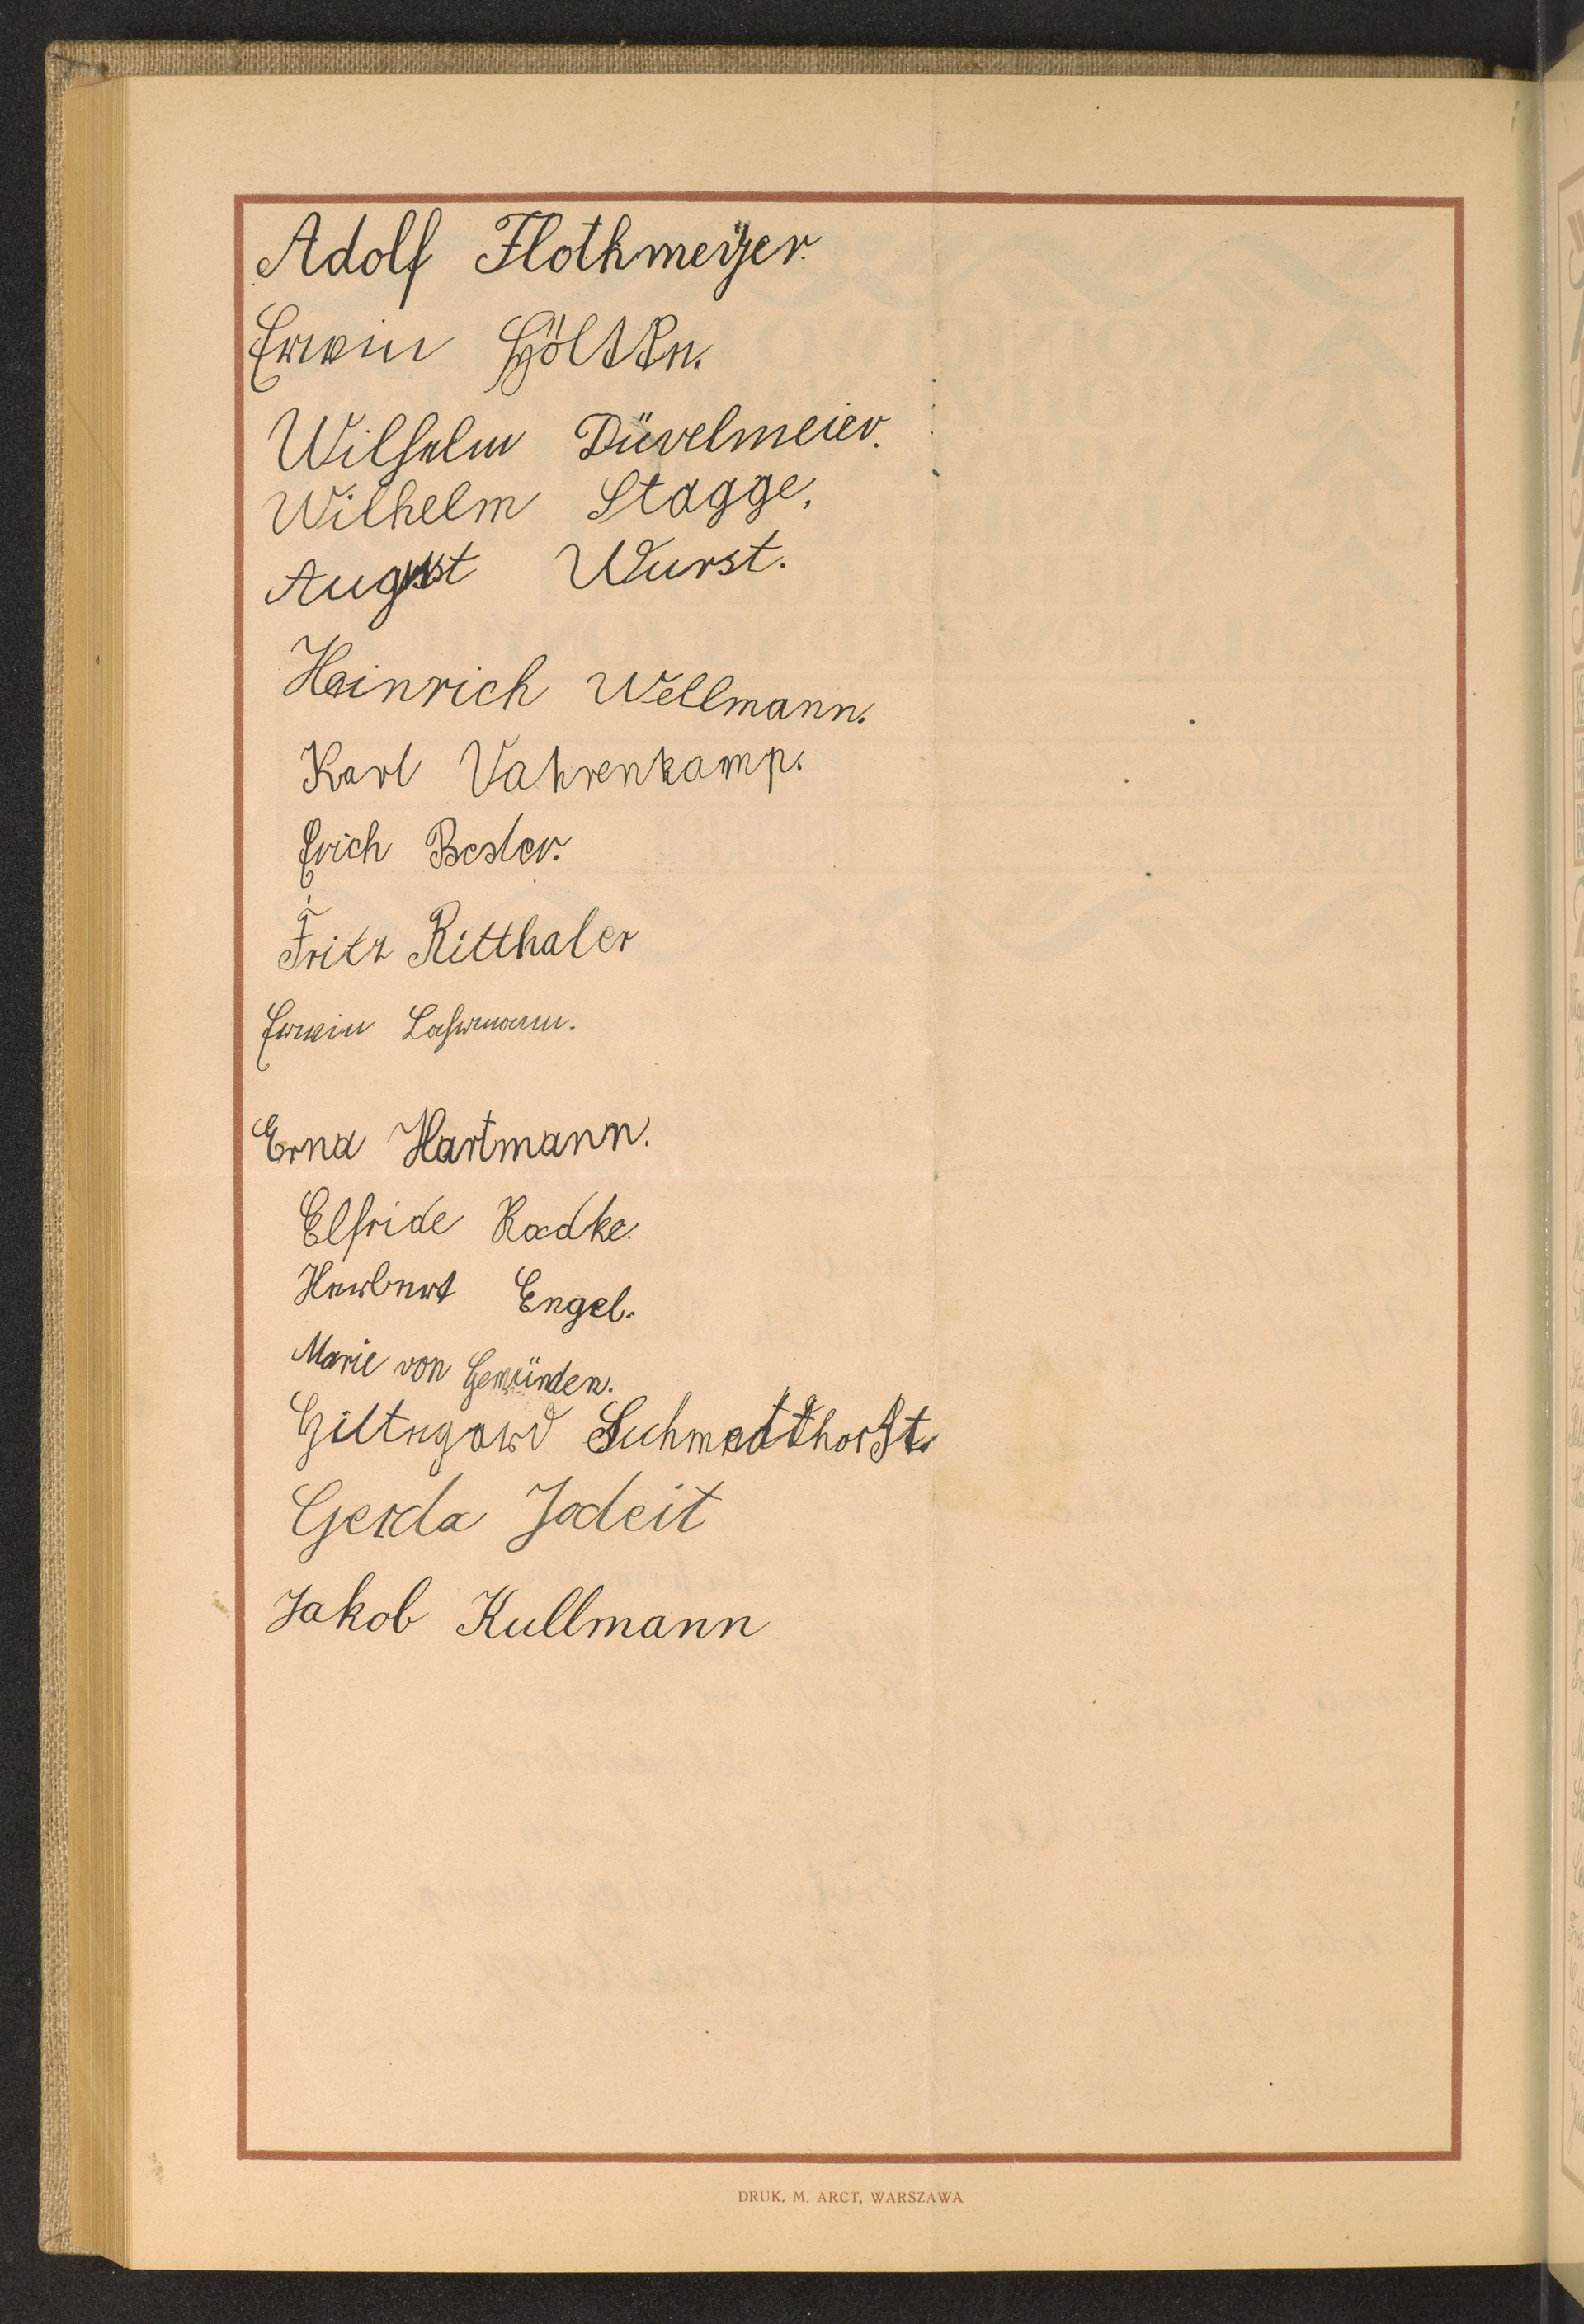 Adolf Flothmeyer.
Erwin Höltke.
Wilhelm Düvelmeier.
Wilhelm Stagge.
August Wurst.
Heinrich Wellmann.
Karl Vahrenkamp.
Erich Bester.
Fritz Ritthaler
Erwin Lohrmann.
Erna Hartmann.
Elfride Radke.
Herbert Engel.
Marie von Gemünden.
Hildegard Schmedthorst.
Gerda Jodeit
Jakob Kullmann
DRUK. M. ARCT, WARSZAWA